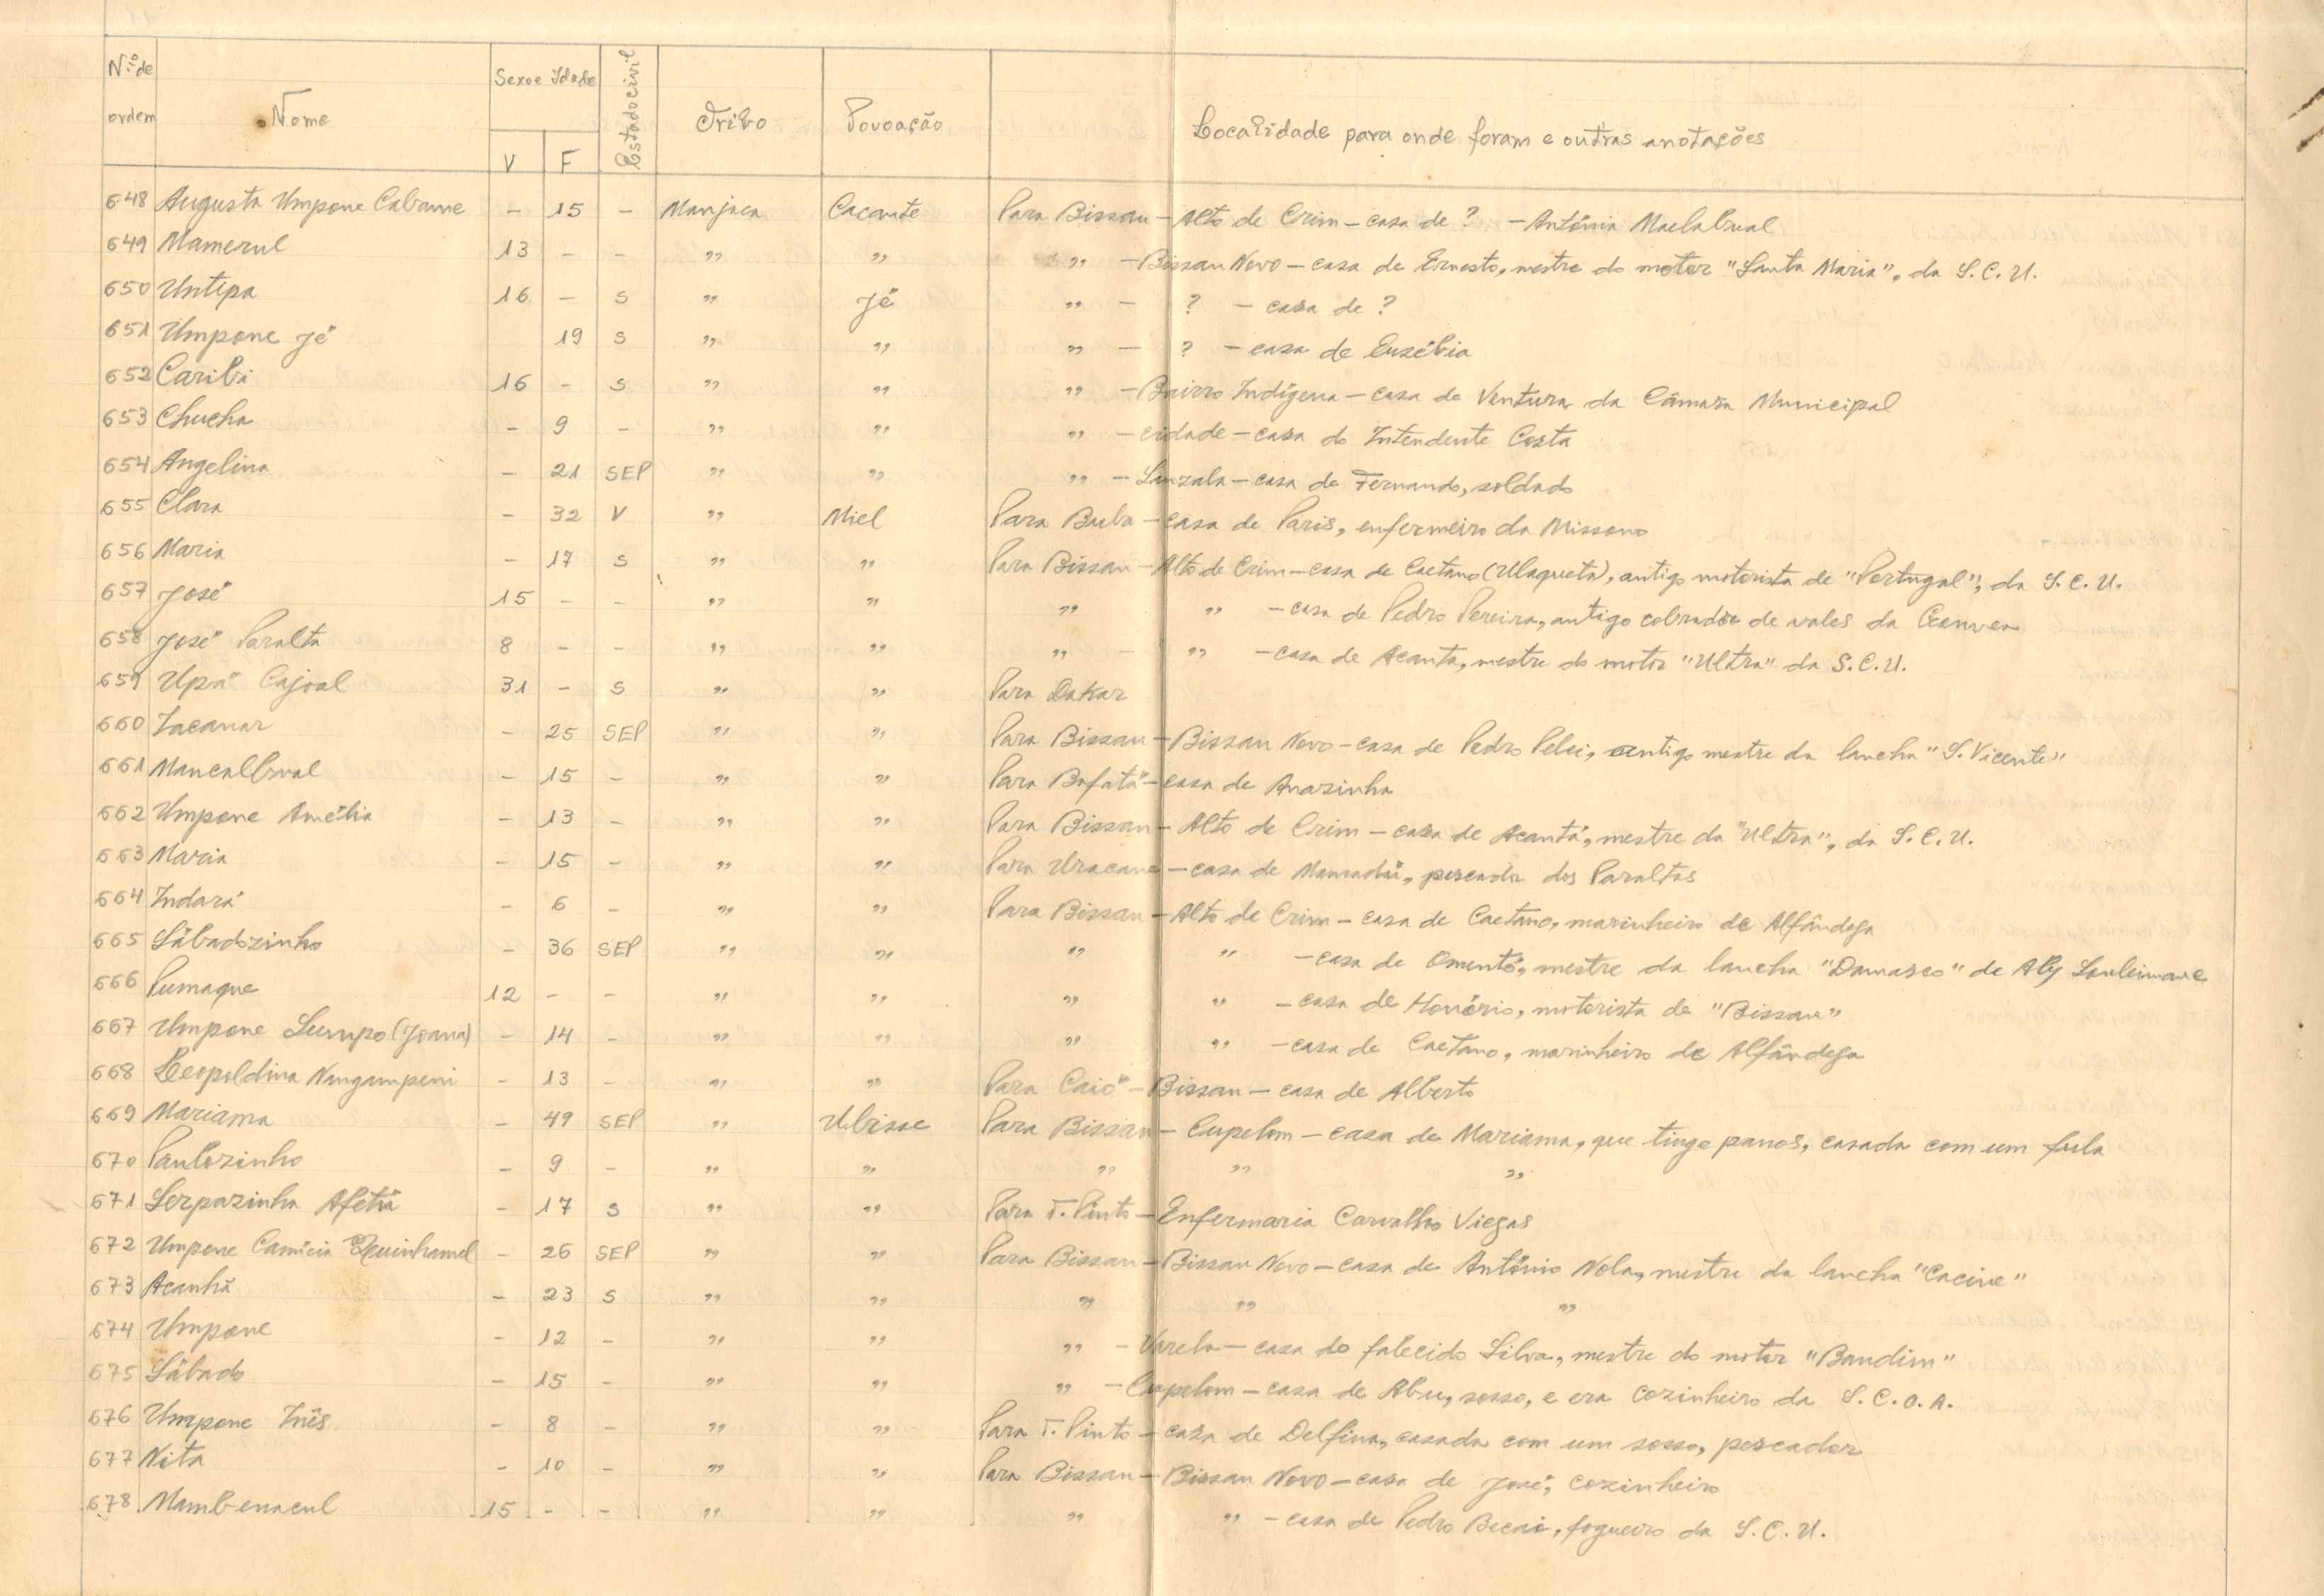 Nº de ordem Nome Sexo e Idade V F Estado civil Tribo Povoação Localidade para onde foram e outras anotações
648 Augusta Umpone Cabame - 15 - Manjaca Cacante Para Bissau - Alto de Crim - casa de ? - António Maclabual
649 Mamerul 13 - - " " " - Bissau Novo - casa de Ernesto, mestre do motor "Santa Maria", da S.C.U.
650 Untipa 16 - S " Jé " - ? - casa de ?
651 Umpone Jé 19 S " " " - ? - casa de Eusébia
652 Caribi 16 - S " " " - Bairro Indígena - casa de Ventura da Câmara Municipal
653 Chucha - 9 - " " " - cidade - casa do Intendente Costa
654 Angelina - 21 SEP " " " - Sanzala - casa de Fernando, soldado
655 Clara - 32 V " Miel Para Buba - casa de Paris, enfermeiro da Missono
656 Maria - 17 S " " Para Bissau - Alto de Crim - casa de Caetano (Ulaqueta), antigo motorista de "Portugal", da S.C.U.
657 José 15 - - " " " " - casa de Pedro Pereira, antigo cobrador de vales da Gouvea
658 José Paralta 8 - - " " " - " - casa de Acanta, mestre do motor "Ultra" da S.C.U.
659 Upá Cajoal 31 - S " " Para Dakar
660 Iacanar - 25 SEP " " Para Bissau - Bissau Novo - casa de Pedro Pelei, antigo mestre da lancha "S. Vicente"
661 Mancalbual - 15 - " " Para Bafatá - casa de Anazinha
662 Umpone Amélia - 13 - " " Para Bissau - Alto de Crim - casa de Acantá, mestre da "Ultra", da S.C.U.
663 Maria - 15 - " " Para Uracane - casa de Mamadú, pescador dos Paraltas
664 Indará - 6 - " " Para Bissau - Alto de Crim - casa de Caetano, marinheiro de Alfândega
665 Sábadozinho - 36 SEP " " " " - casa de Omentó, mestre da lancha "Damasco" de Aly Souleimane
666 Pumaque 12 - - " " " " - casa de Honório, motorista de "Bissau"
667 Umpone Sumpo (Joana) - 14 - " " " " - casa de Caetano, marinheiro de Alfândega
668 Leopoldina Nangampeni - 13 - " " Para Caió - Bissau - casa de Alberto
669 Mariama - 49 SEP " Ubisse Para Bissau - Cupelom - casa de Mariama, que tinge panos, casada com um fula
670 Paulozinho - 9 - " " " " "
671 Serpazinha Afetú - 17 S " " Para T. Pinto - Enfermaria Carvalho Viegas
672 Umpone Camicia Quinhamel - 26 SEP " " Para Bissau - Bissau Novo - casa de António Nola, mestre da lancha "Cacine"
673 Acanhã - 23 S " " " " "
674 Umpone - 12 - " " " - Varela - casa do falecido Silva, mestre do motor "Bandim"
675 Sábado - 15 - " " " - Cupelom - casa de Abu, sosso, e era cozinheiro da S.C.O.A.
676 Umpone Inês - 8 - " " Para T. Pinto - casa de Delfina, casada com um sosso, pescador
677 Nita - 10 - " " Para Bissau - Bissau Novo - casa de José, cozinheiro
678 Mambenacul 15 - - " " " " - casa de Pedro Becai, fogueiro da S.C.U.